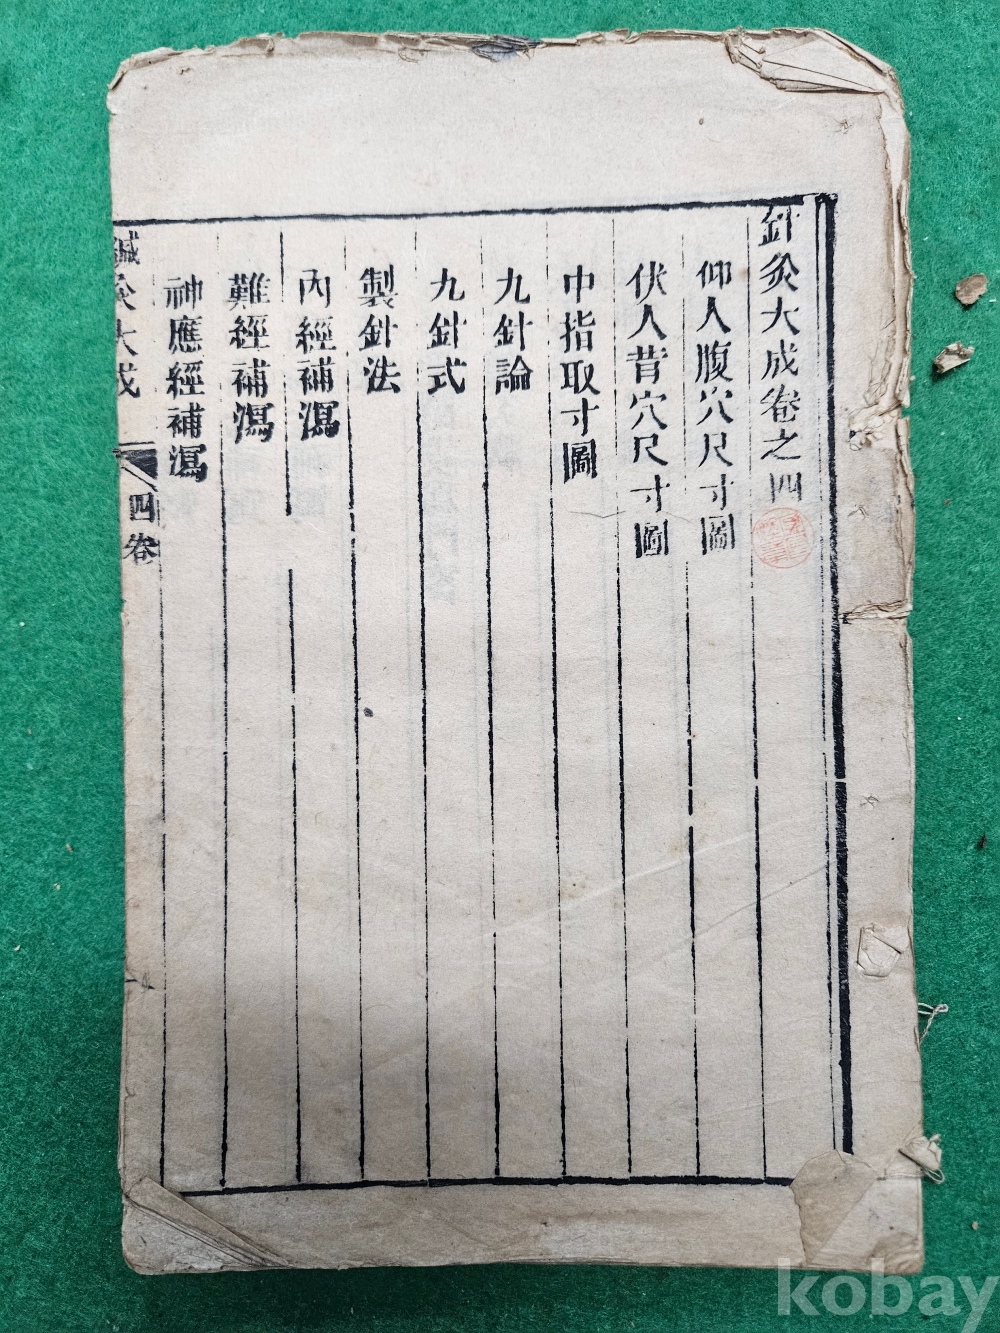 針灸大成卷之四
仰人腹穴尺寸圖
伏人背穴尺寸圖
中指取寸圖
九針論
九針式
製針法
內經補瀉
難經補瀉
神應經補瀉
鍼灸大成
四卷
kobay